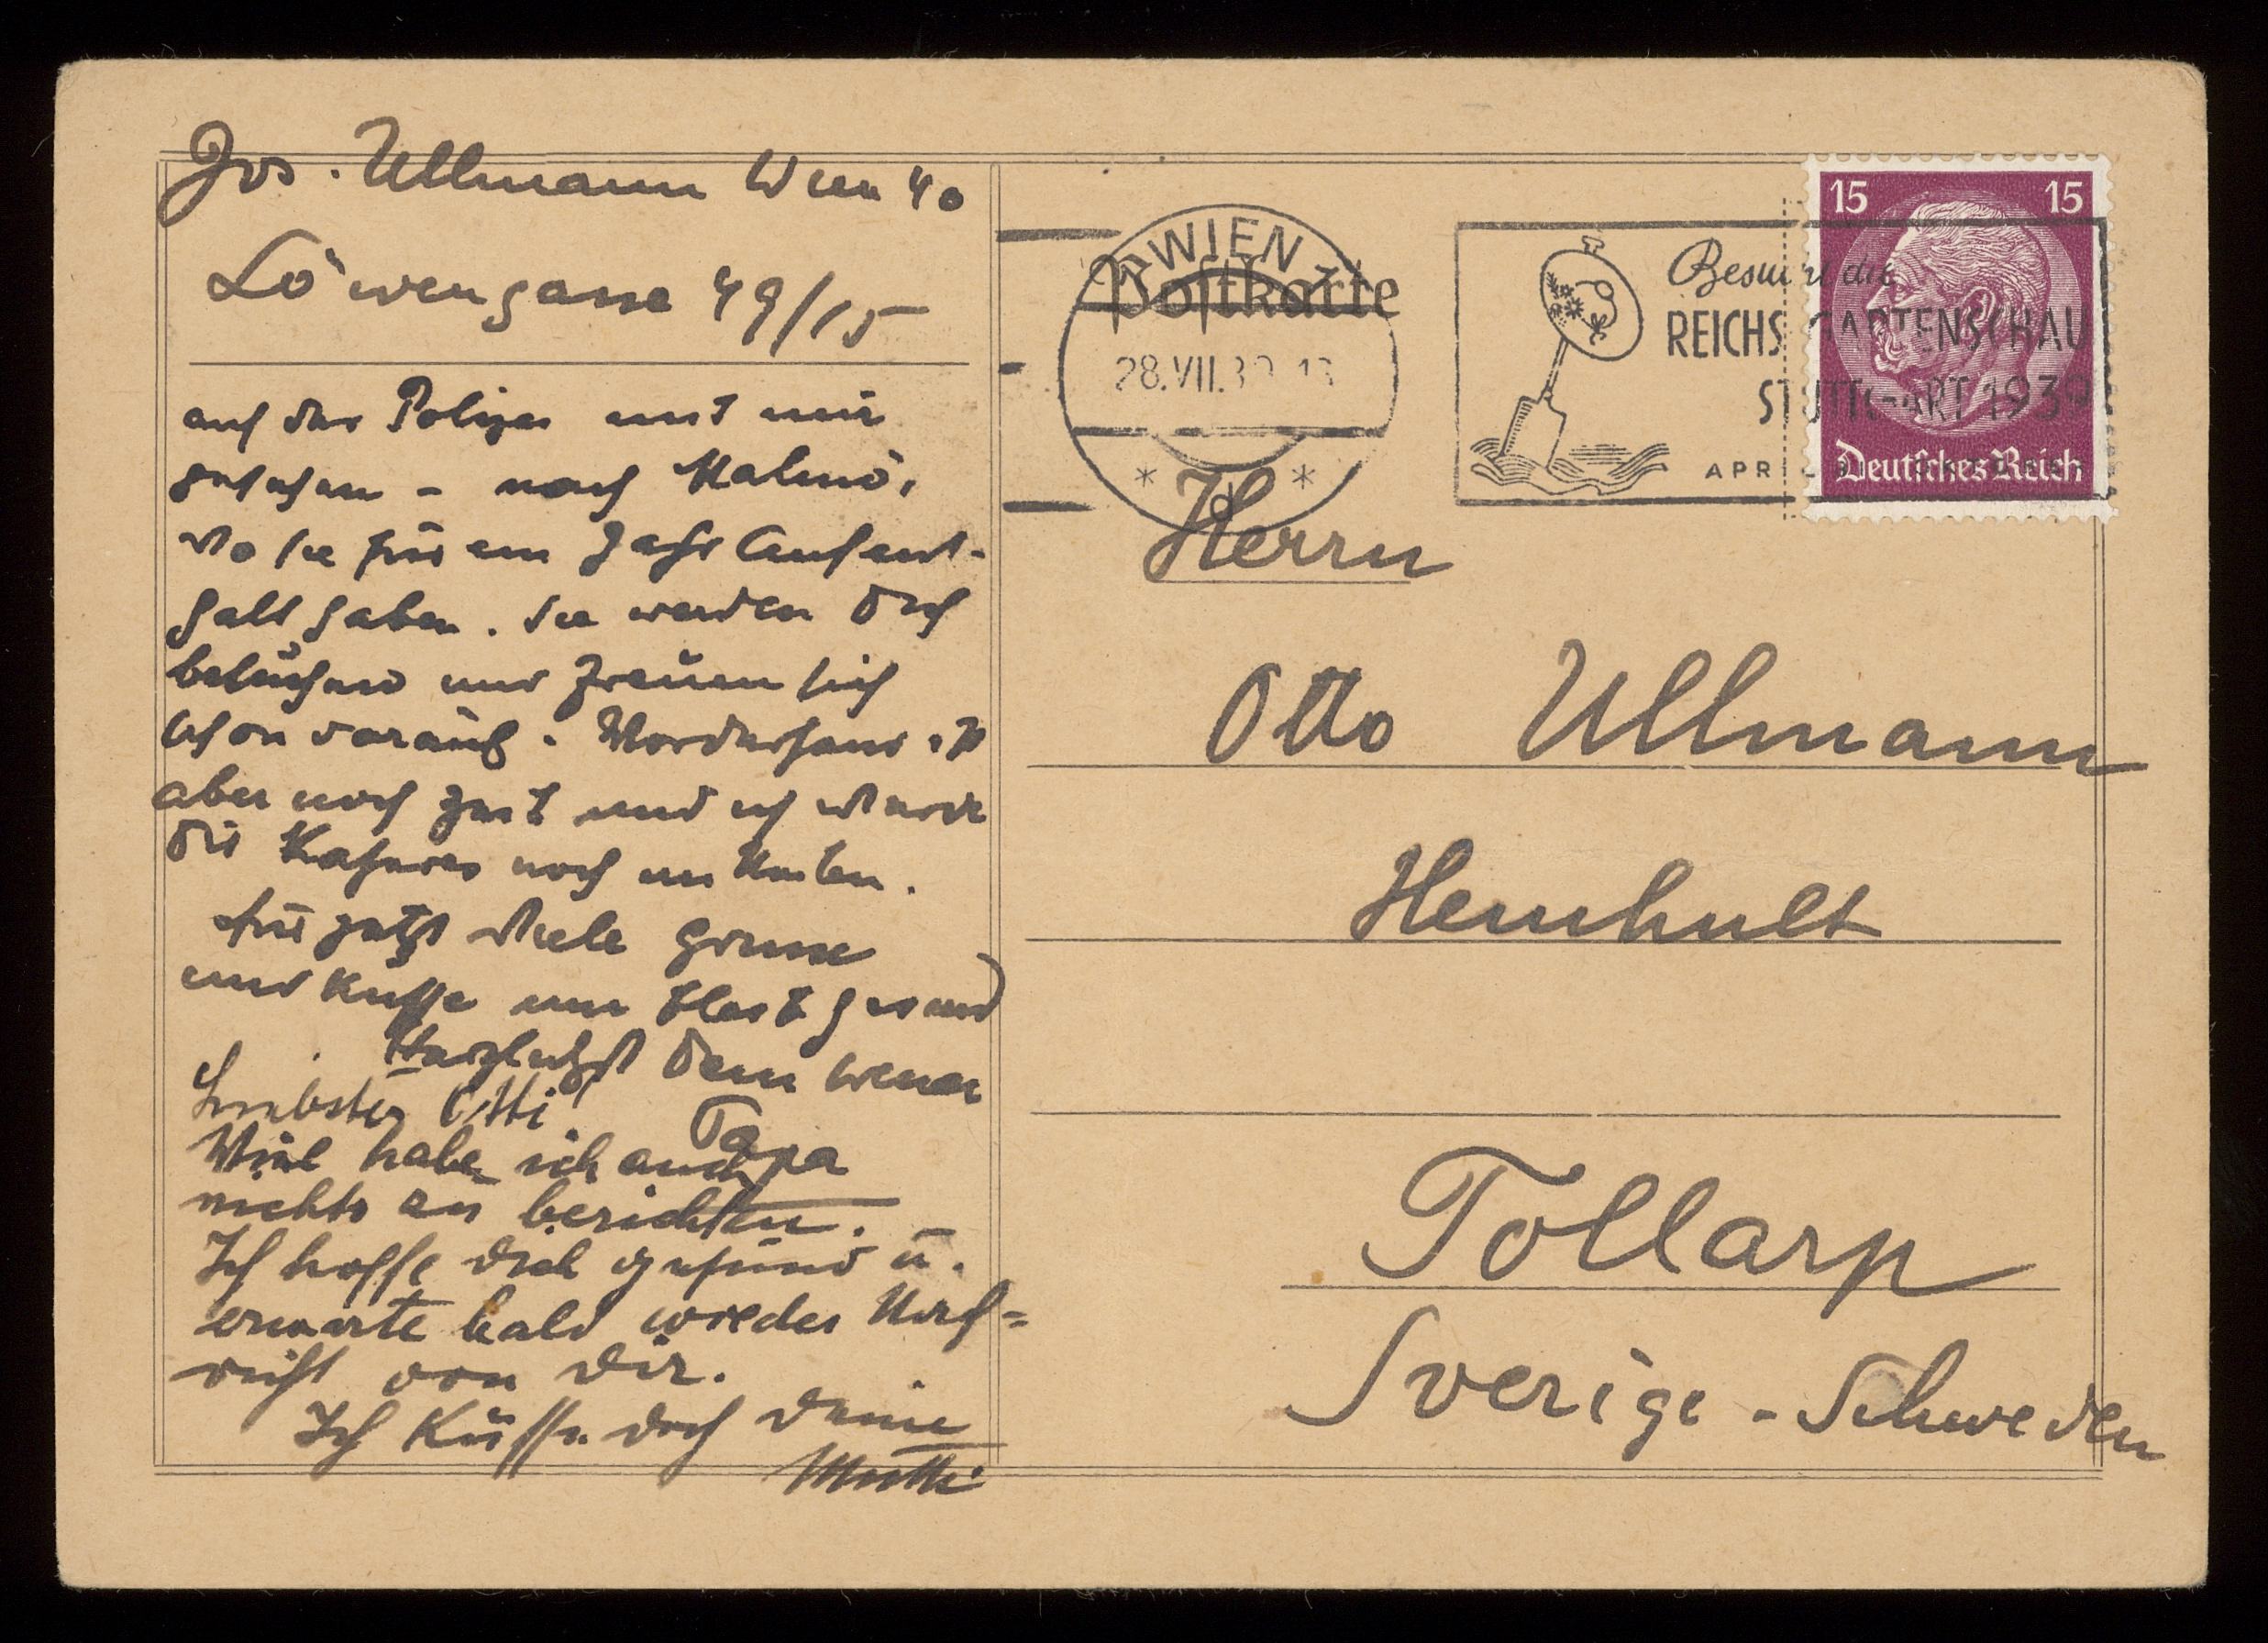 Jos. Ullmann Wien 40
Löwengasse 49/15
auf der Polizei mit mir
gesehen - nach Malmö,
wo sie für ein Jahr Aufent-
halt haben. Sie werden Dich
besuchen und freuen sich
schon darauf. Vorderhand ist
aber noch Zeit und ich werde
Dir Näheres noch mitteilen.
Für jetzt viele Grüsse
und Küsse und bleib gesund
Herzlichst Dein
Papa
Liebster Otti!
Viel habe ich auch
nichts zu berichten.
Ich hoffe Dich gesund u.
erwarte bald wieder Nach=
richt von Dir.
Ich Küsse Dich Deine
Mutti
Postkarte
WIEN
28.VII.39
Besucht die
REICHSGARTENSCHAU
STUTTGART 1939
APRIL
15 15
Deutsches Reich
Herrn
Otto Ullmann
Hemhult
Tollarp
Sverige - Schweden